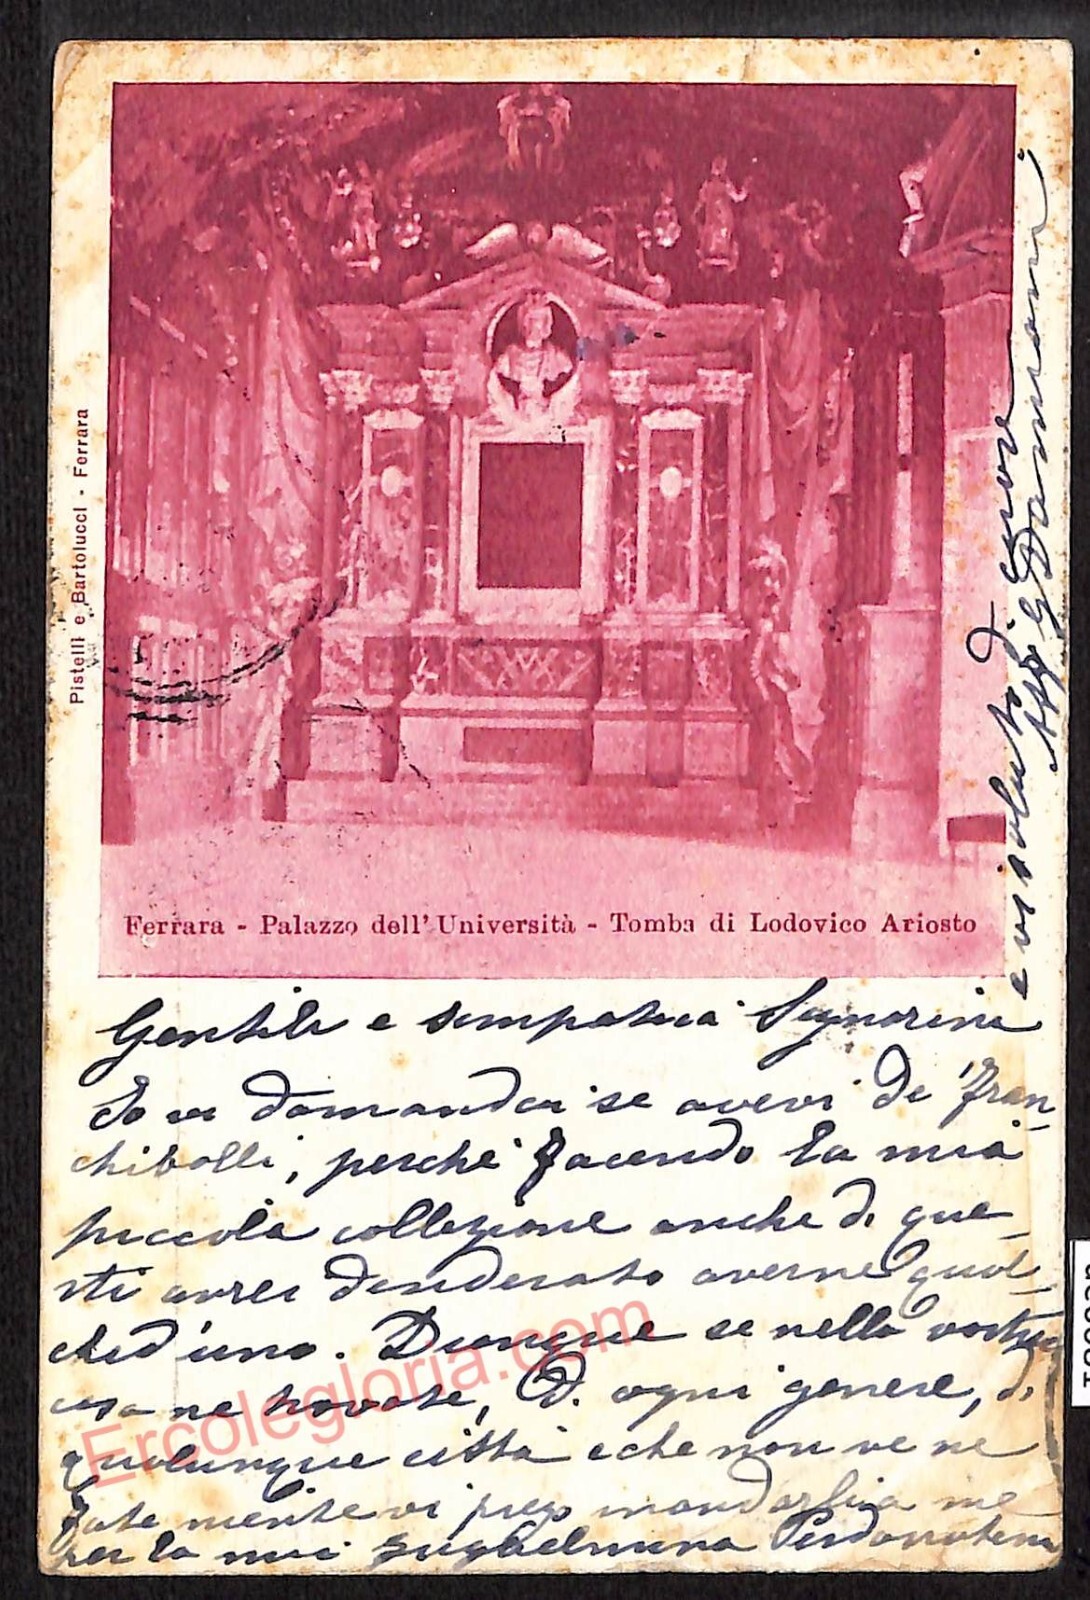 Pistelli e Bartolucci - Ferrara
Ferrara - Palazzo dell' Università - Tomba di Lodovico Ariosto
Gentile e simpatica Signorina
Io vi domandai se avevi de' fran-
chibolli, perchè facendo la mia
piccola collezione anche di que-
sti avrei desiderato averne qual-
ched'uno. Dunque se nella vostra
casa ne trovate, di ogni genere, di
qualunque città e che non ve ne
fate niente vi prego mandarli a me
per la mia Perdonatemi
e vi saluto di cuore
Ercolegloria.com